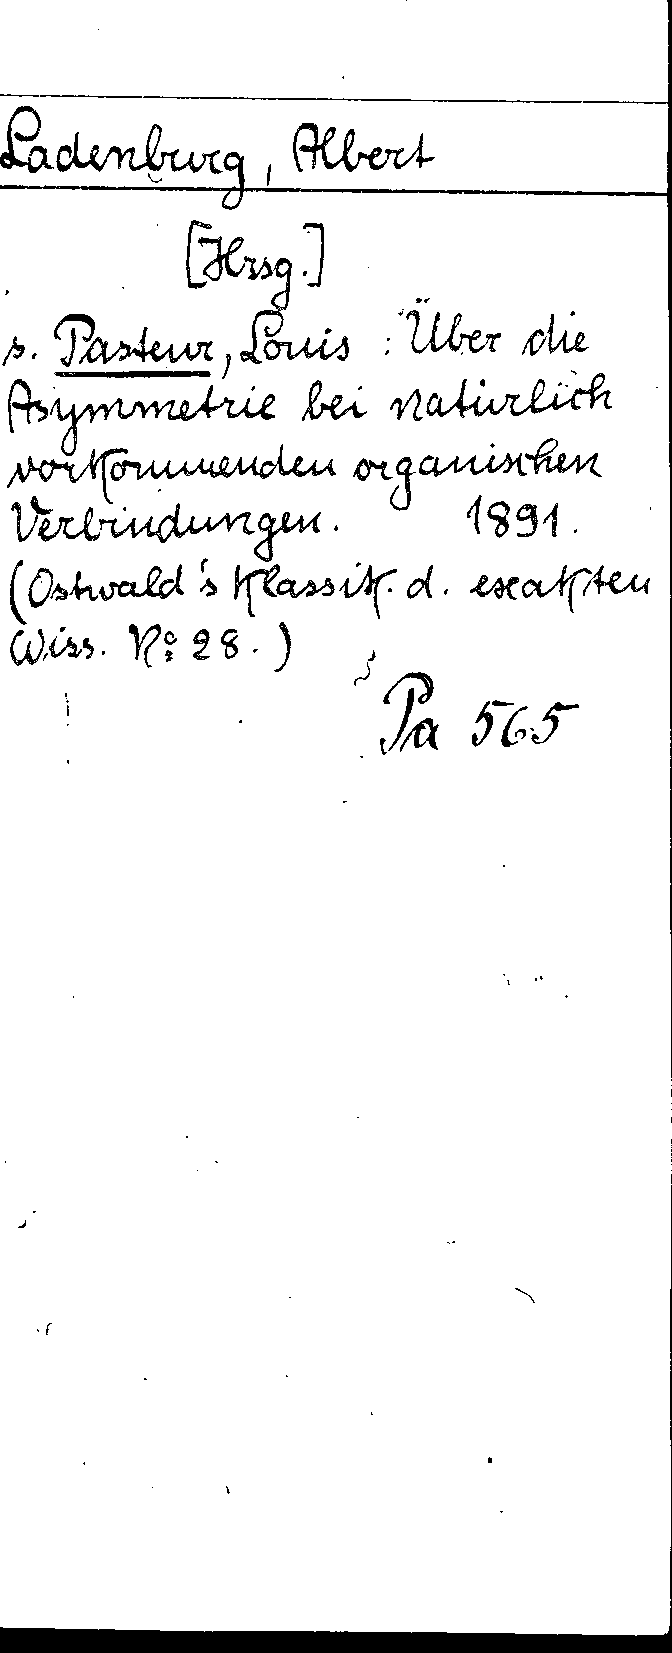 Ladenburg, Albert
[Hrsg.]
s. Pasteur, Louis : Über die
Asymmetrie bei natürlich
vorkommenden organischen
Verbindungen. 1891.
(Ostwald's Klassik. d. exakten
Wiss. No 28.)
Pa 565